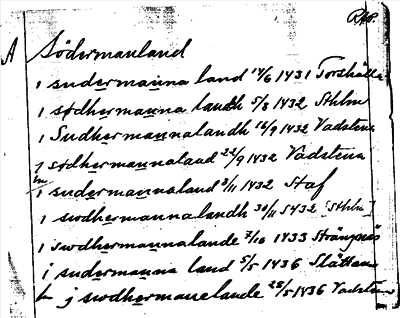 A Södermanland
i sudermanna land 14/6 1431 Torshälla
i sødhermanna landh 5/8 1432 Sthlm
i Sudhermannalandh 16/9 1432 Vadstena
i sødhermannaland 22/9 1432 Vadstena
i sudermannaland 3/11 1432 Staf
i swdhermannalandh 30/11 1432 [Sthlm]
i swdhermannalande 7/10 1433 Strängnäs
i sudermanna land 5/5 1436 Slätten
j swdhermanelande 25/5 1436 Vadstena